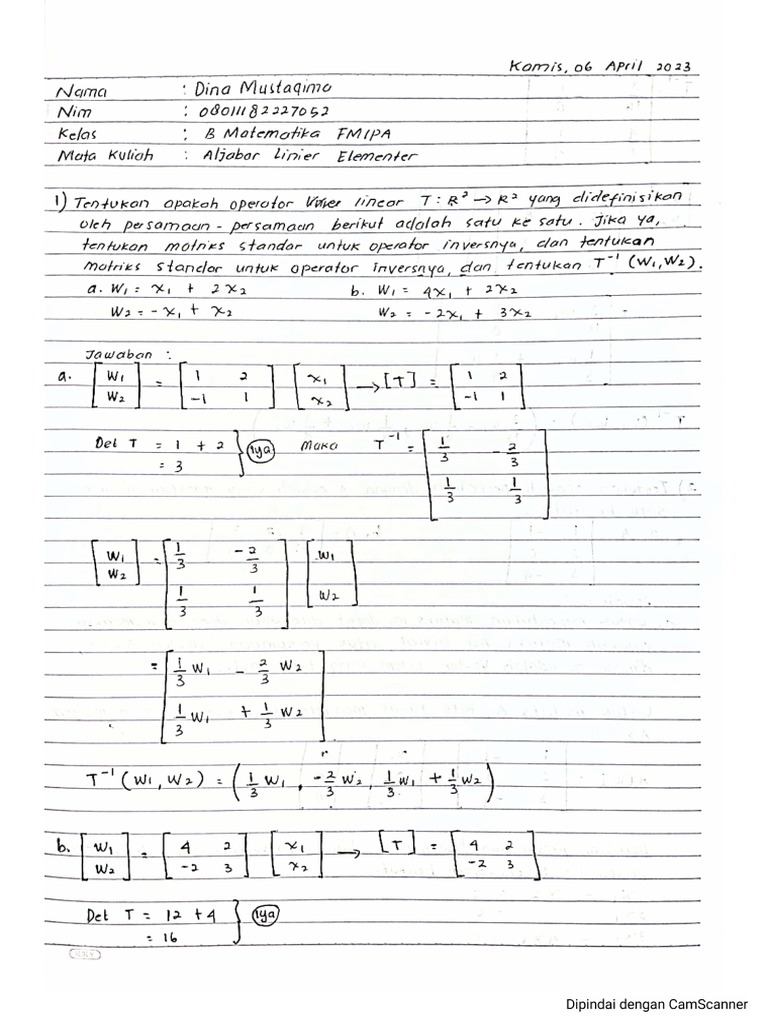 Kamis, 06 April 2023
Nama : Dina Mustaqima
Nim : 08011182227052
Kelas : B Matematika FMIPA
Mata Kuliah : Aljabar Linier Elementer
1) Tentukan apakah operator linear T : R² → R² yang didefinisikan
oleh persamaan - persamaan berikut adalah satu ke satu. Jika ya,
tentukan matriks standar untuk operator inversnya, dan tentukan
matriks standar untuk operator inversnya, dan tentukan T⁻¹ (W₁,W₂).
a. W₁ = x₁ + 2x₂ b. W₁ = 4x₁ + 2x₂
W₂ = -x₁ + x₂ W₂ = -2x₁ + 3x₂
Jawaban :
a. [W₁ W₂] = [1 2 -1 1] [x₁ x₂] → [T] = [1 2 -1 1]
Det T = 1 + 2 } iya Maka T⁻¹ = [1/3 -2/3 1/3 1/3]
= 3
[W₁ W₂] = [1/3 -2/3 1/3 1/3] [W₁ W₂]
= [1/3 W₁ - 2/3 W₂
1/3 W₁ + 1/3 W₂]
T⁻¹ (W₁, W₂) = (1/3 W₁, -2/3 W₂, 1/3 W₁ + 1/3 W₂)
b. [W₁ W₂] = [4 2 -2 3] [x₁ x₂] → [T] = [4 2 -2 3]
Det T = 12 + 4 } iya
= 16
Dipindai dengan CamScanner